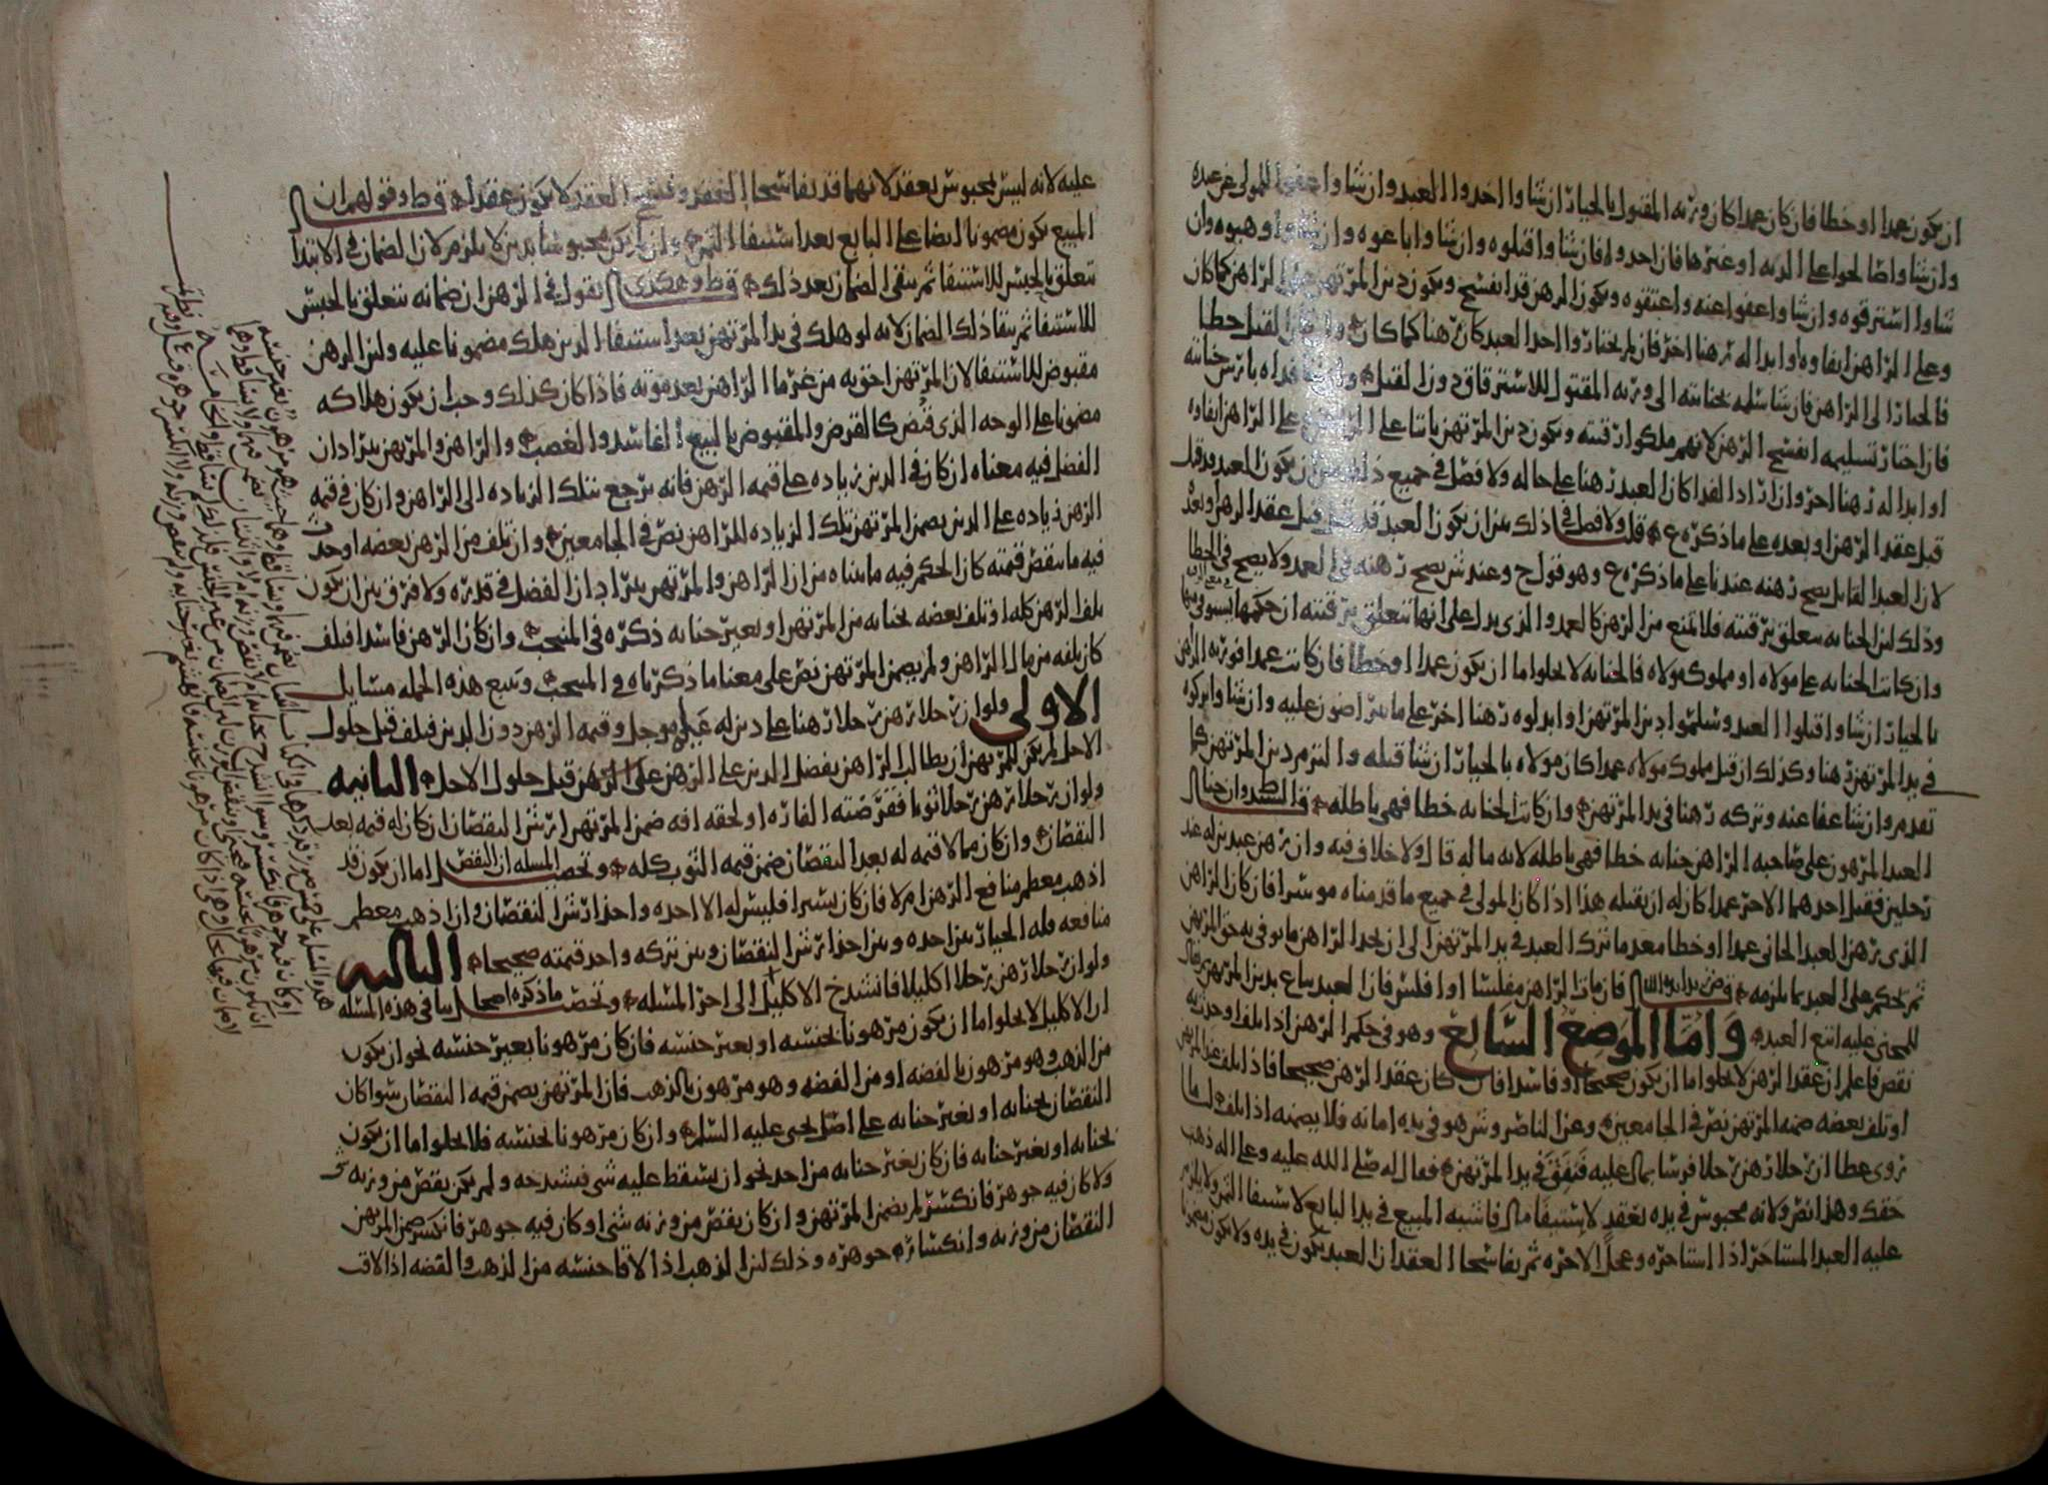 ان يكون عمدا او خطا فان كان عمدا كان ورثه المقتول بالخيار ان شاوا اخذوا العبد وان شاوا عفوا للمولى عن عبده
وان شاوا صالحوا على الديه او غيرها فان اخذوه فان شاوا قتلوه وان شاوا باعوه وان شاوا وهبوه وان
شاوا استرقوه وان شاوا عفوا عنه واعتقوه ويكون الرهن قد انفسخ ويكون دين المرتهن على الراهن كما كان
وعلى الراهن ايفاوه او ابداله رهنا اخر فان لم يختاروا اخذ العبد كان رهنا كما كان وان كان القتل خطا
فالخيار الى الراهن فان شا سلمه بجنايته الى ورثه المقتول للاسترقاق دون القتل وان شا فداه بارش جنايته
فان اختار تسليمه انفسخ الرهن لانهم ملكوا رقبته ويكون دين المرتهن باقيا على الراهن على الراهن ايفاوه
او ابداله رهنا اخر وان اراد الفدا كان العبد رهنا على حاله ولا فصل في جميع ذلك بين ان يكون العبد قد قتل
قبل عقد الرهن او بعده على ما ذكره ع قلت ولا فصل في ذلك بين ان يكون العبد قد قتل قبل عقد الرهن وبعده
لان العبد القاتل يصح رهنه عندنا على ما ذكره ع وهو قول ح وعند ش يصح رهنه في العمد ولا يصح في الخطا
وذلك لان الجنايه تتعلق برقبته فلا تمنع من الرهن كالعمد والذي يدل على انها تتعلق برقبته ان حكمها يستوفى منها
وان كانت الجنايه على مولاه او مملوك مولاه فالجنايه لا يخلوا اما ان يكون عمدا او خطا فان كانت عمدا فورثه الراهن
بالخيار ان شاوا قتلوا العبد وسلموا دين المرتهن او ابدلوه رهنا اخر على ما يتراضون عليه وان شاوا تركوه
في يد المرتهن رهنا وكذلك ان قتل مملوك مولاه عمدا كان مولاه بالخيار ان شا قتله والتزم دين المرتهن كما
تقدم وان شا عفا عنه وتركه رهنا في يد المرتهن وان كانت الجنايه خطا فهي باطله قال السيد ط وان جنا
العبد المرهون على صاحبه الراهن جنايه خطا فهي باطله لانه ماله قال ولا خلاف فيه وان رهن عبدين له عند
رجلين فقتل احدهما الاخر عمدا كان له ان يقتله هذا اذا كان المولى في جميع ما قدمناه موسرا فان كان الراهن
الذي رهن العبد الجاني عمدا او خطا معدما ترك العبد في يد المرتهن الى ان يجد الراهن ما يوفي به حق المرتهن
ثم يحكم على العبد بما يلزمه فان مات الراهن مفلسا او افلس فان العبد يباع بدين المرتهن وقال
للمجنى عليه اتبع العبد واما الموضع السابع وهو في حكم الرهن اذا تلف او حدث به
نقص فاعلم ان عقد الرهن لا يخلوا اما ان يكون صحيحا او فاسدا فان كان عقد الرهن صحيحا فاذا تلف عند المرتهن
او تلف بعضه ضمنه المرتهن نص في الجامعين وعن الناصر وش هو في يده امانه فلا يضمنه اذا تلف لنا ما
روى عطا ان رجلا رهن رجلا فرسا بمال عليه فنفق في يد المرتهن فقال له صلى الله عليه وعلى اله ذهب
حقك وهذا نص ولانه محبوس في يده بعقد لاستيفا مال فاشبه المبيع في يد البايع لاستيفا الثمن ولا يلزم
عليه العبد المستاجر اذا استاجره وعجل الاجره ثم تفاسخا العقد ان العبد يكون في يده ولا يكون مضمونا
عليه لانه ليس بمحبوس بعقد لانهما قد تفاسخا العقد وفسخ العقد لا يكون عقدا ق ط وقولهم ان
المبيع يكون مضمونا ايضا على البايع بعد استيفا الثمن وان لم يكن محبوسا بدين لا يلزم لان الضمان في الابتدا
تعلق بالحبس للاستيفا ثم بقي الضمان بعد ذلك ق ط وعندي ان نقول في الرهن ان ضمانه يتعلق بالحبس
للاستيفا ثم بقا ذلك الضمان لانه لو هلك في يد المرتهن بعد استيفا الدين هلك مضمونا عليه ولان الرهن
مقبوض للاستيفا لان المرتهن احق به من غرما الراهن بعد موته فاذا كان كذلك وجب ان يكون هلاكه
مضمونا على الوجه الذي قبض كالقرض والمقبوض بالبيع الفاسد والغصب والراهن والمرتهن يترادان
الفضل فيه معناه ان كان في الدين زياده على قيمه الرهن فانه يرجع بتلك الزياده الى الراهن وان كان في قيمه
الرهن زياده على الدين يضمن المرتهن تلك الزياده للراهن نص في الجامعين وان تلف من الرهن بعضه او حدث
فيه ما ينقص قيمته كان الحكم فيه ما بيناه من ان الراهن والمرتهن يترادان الفضل في قدره ولا فرق بين ان يكون
تلف الرهن كله او تلف بعضه بجنايه من المرتهن او بغير جنايه ذكره في المنتخب وان كان الرهن فاسدا فتلف
كان تلفه من مال الراهن ولم يضمن المرتهن نص على معنا ما ذكرناه في المنتخب وتتبع هذه الجمله مسايل
الاولى ولو ان رجلا رهن رجلا رهنا على دين له عليه موجل وقيمه الرهن دون الدين فتلف قبل حلول
الاجل لم يكن للمرتهن ان يطالب الراهن بفضل الدين على الرهن قبل حلول الاجل الثانيه
ولو ان رجلا رهن رجلا ثوبا فقرضته الفاره او لحقه افه ضمن المرتهن ارش النقصان ان كان له قيمه بعد
النقصان وان كان مما لا قيمه له بعد النقصان ضمن قيمه الثوب كله وتحصيل المسله ان النقص اما ان يكون قد
اذهب معظم منافع الرهن ام لا فان كان يسيرا فليس له الا اخذه واخذ ارش النقصان وان اذهب معظم
منافعه فله الخيار بين اخذه وبين اخذ ارش النقصان وبين تركه واخذ قيمته صحيحا الثالثه
ولو ان رجلا رهن رجلا اكليلا فانشدخ الاكليل الى اخر المسله وتحصيل ما ذكره اصحابنا في هذه المسله
ان الاكليل لا يخلوا اما ان يكون مرهونا بجنسه او بغير جنسه فان كان مرهونا بغير جنسه نحو ان يكون
من الذهب وهو مرهون بالفضه او من الفضه وهو مرهون بالذهب فان المرتهن يضمن قيمه النقصان سوا كان
النقصان بجنايه او بغير جنايه على اصل يحيى عليه السلم وان كان مرهونا بجنسه فلا يخلوا اما ان يكون
بجنايه او بغير جنايه فان كان بغير جنايه من احد نحو ان يسقط عليه شي فيشدخه ولم يكن نقص من وزنه شي
ولا كان فيه جوهر فانكسر لم يضمن المرتهن وان كان نقص من وزنه شي او كان فيه جوهر فانكسر ضمن المرتهن
النقصان من وزنه وانكسار جوهره وذلك لان الذهب اذا لاقا جنسه من الذهب والفضه اذا لاقت